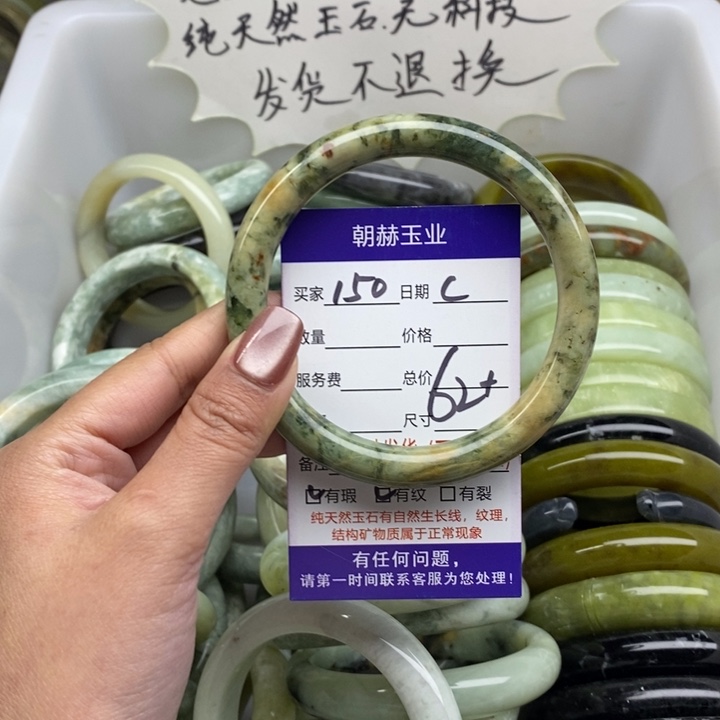 纯天然玉石.无科技
发货不退换
朝赫玉业
买家 150 日期 C
数量 价格
服务费 总价 62+
尺寸
备注
有瑕 有纹 有裂
纯天然玉石有自然生长线，纹理，
结构矿物质属于正常现象
有任何问题，
请第一时间联系客服为您处理！